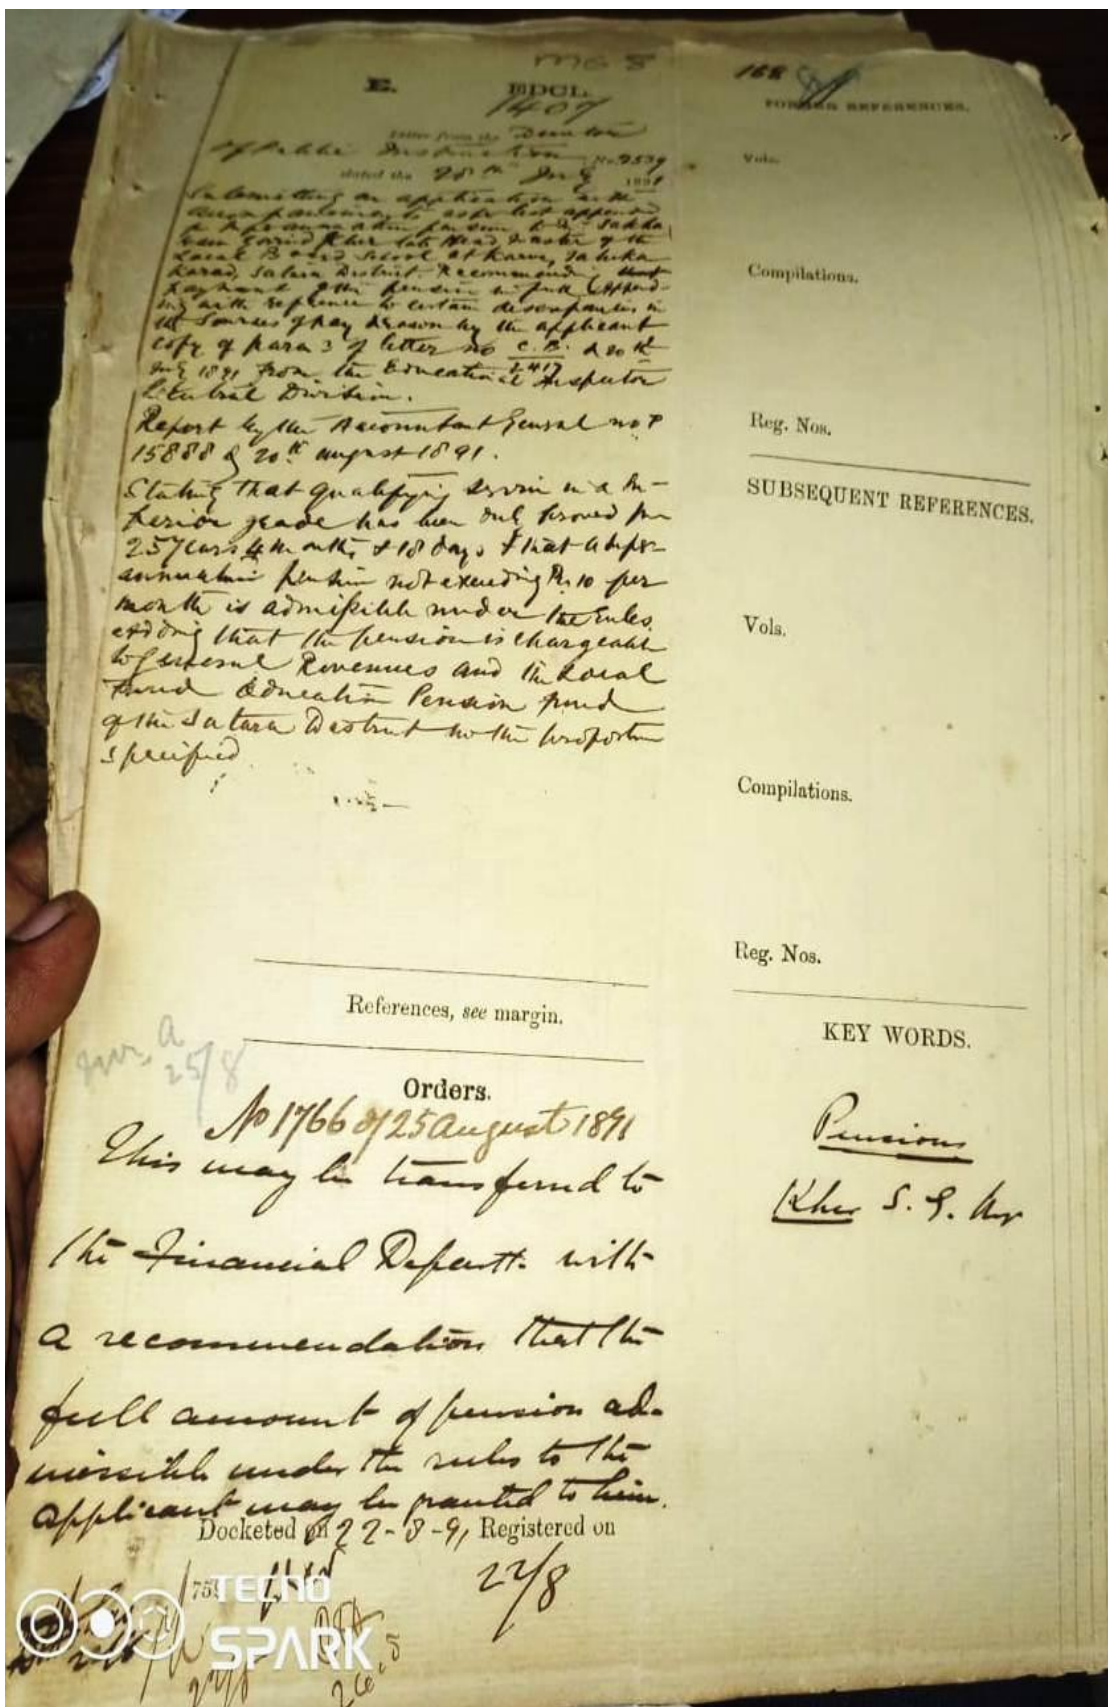 MG 8
E. EDCL.
1407
Letter from the Director
of Public Instruction No. 2539
dated the 28th July 1891
Submitting an application with
accompaniments as per list appended
for superannuation pension to Mr Sakha
ram Govind Kher late Head Master of the
Local Board School at Karve, Taluka
Karad, Satara District. Recommending that
payment of the pension in full & append-
ing with reference to certain discrepancies in
the sources of pay drawn by the applicant
copy of para 3 of letter no C. B. d 20th
1417
July 1891 from the Educational Inspector
Central Division.
Report by the Accountant General no P
15888 of 20th august 1891.
Stating that qualifying service in a
grade has been only proved for
25 years 4 months & 18 days & that a super-
annuation pension not exceeding Rs 10 per
month is admissible under the rules.
adding that the pension is chargeable
to General Revenues and the Local
Fund Education Pension fund
of the Satara District in the proportion
specified
References, see margin.
a
25/8
Orders.
No 1766 of 25 August 1891
This may be transferred to
the Financial Departt. with
a recommendation that the
full amount of pension ad-
missible under the rules to the
applicant may be granted to him.
Docketed on 22-8-91 Registered on
22/8
759
168
FORMER REFERENCES.
Vols.
Compilations.
Reg. Nos.
SUBSEQUENT REFERENCES.
Vols.
Compilations.
Reg. Nos.
KEY WORDS.
Pensions
Kher S. G. Mr
TECNO
SPARK